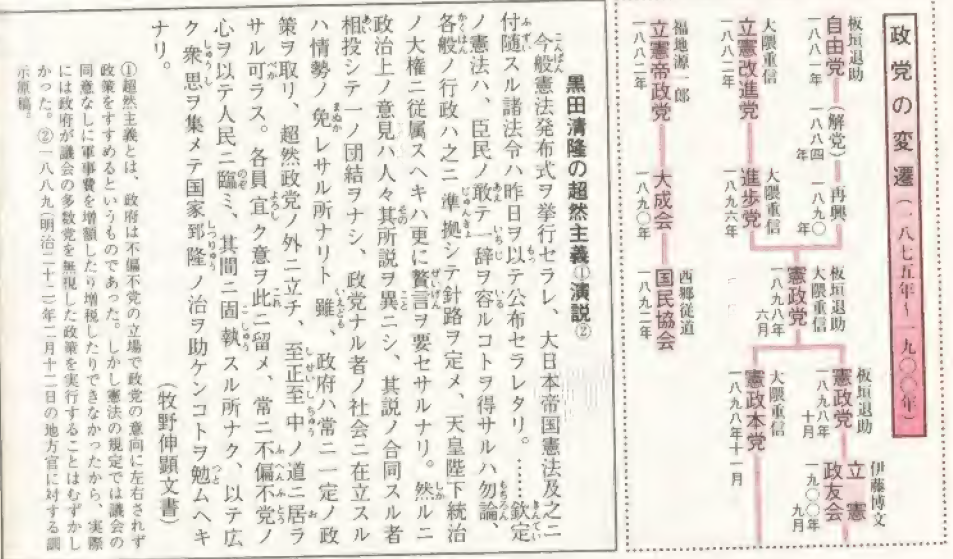 政党の変遷(一八七五年〜一九〇〇年)
板垣退助
自由党
一八八一年
(解党)
一八八四年
再興
一八九〇年
大隈重信
立憲改進党
一八八二年
大隈重信
進歩党
一八九六年
福地源一郎
立憲帝政党
一八八二年
大成会
一八九〇年
西郷従道
国民協会
一八九二年
板垣退助
大隈重信
憲政党
一八九八年六月
板垣退助
憲政党
一八九八年十月
大隈重信
憲政本党
一八九八年十一月
伊藤博文
立憲政友会
一九〇〇年九月
黒田清隆の超然主義①演説②
今般憲法発布式ヲ挙行セラレ、大日本帝国憲法及之ニ
付随スル諸法令ハ昨日ヲ以テ公布セラレタリ。……欽定
ノ憲法ハ、臣民ノ敢テ一辞ヲ容ルコトヲ得サルハ勿論、
各般ノ行政ハ之ニ準拠シテ針路ヲ定メ、天皇陛下統治
ノ大権ニ従属スヘキハ更ニ贅言ヲ要セサルナリ。然ルニ
政治上ノ意見ハ人々其所説ヲ異ニシ、其説ノ合同スル者
相投シテ一ノ団結ヲナシ、政党ナル者ノ社会ニ在立スル
ハ情勢ノ免レサル所ナリト雖、政府ハ常ニ一定ノ政
策ヲ取リ、超然政党ノ外ニ立チ、至正至中ノ道ニ居ラ
サル可ラス。各員宜ク意ヲ此ニ留メ、常ニ不偏不党ノ
心ヲ以テ人民ニ臨ミ、其間ニ固執スル所ナク、以テ広
ク衆思ヲ集メテ国家郅隆ノ治ヲ助ケンコトヲ勉ムヘキ
ナリ。
(牧野伸顕文書)
①超然主義とは、政府は不偏不党の立場で政党の意向に左右されず
政策をすすめるというものであった。しかし憲法の規定では議会の
同意なしに軍事費を増額したり増税したりできなかったから、実際
には政府が議会の多数党を無視した政策を実行することはむずかし
かった。②一八八九(明治二十二)年二月十二日の地方官に対する訓
示原稿。